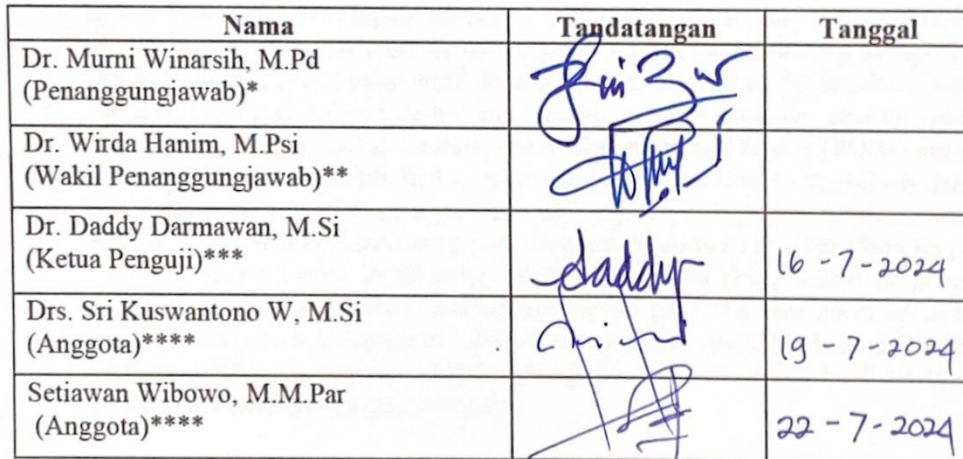 Nama Tandatangan Tanggal
Dr. Murni Winarsih, M.Pd
(Penanggungjawab)*
Dr. Wirda Hanim, M.Psi
(Wakil Penanggungjawab)**
Dr. Daddy Darmawan, M.Si
(Ketua Penguji)*** daddy 16-7-2024
Drs. Sri Kuswantono W, M.Si
(Anggota)**** 19-7-2024
Setiawan Wibowo, M.M.Par
(Anggota)**** 22-7-2024